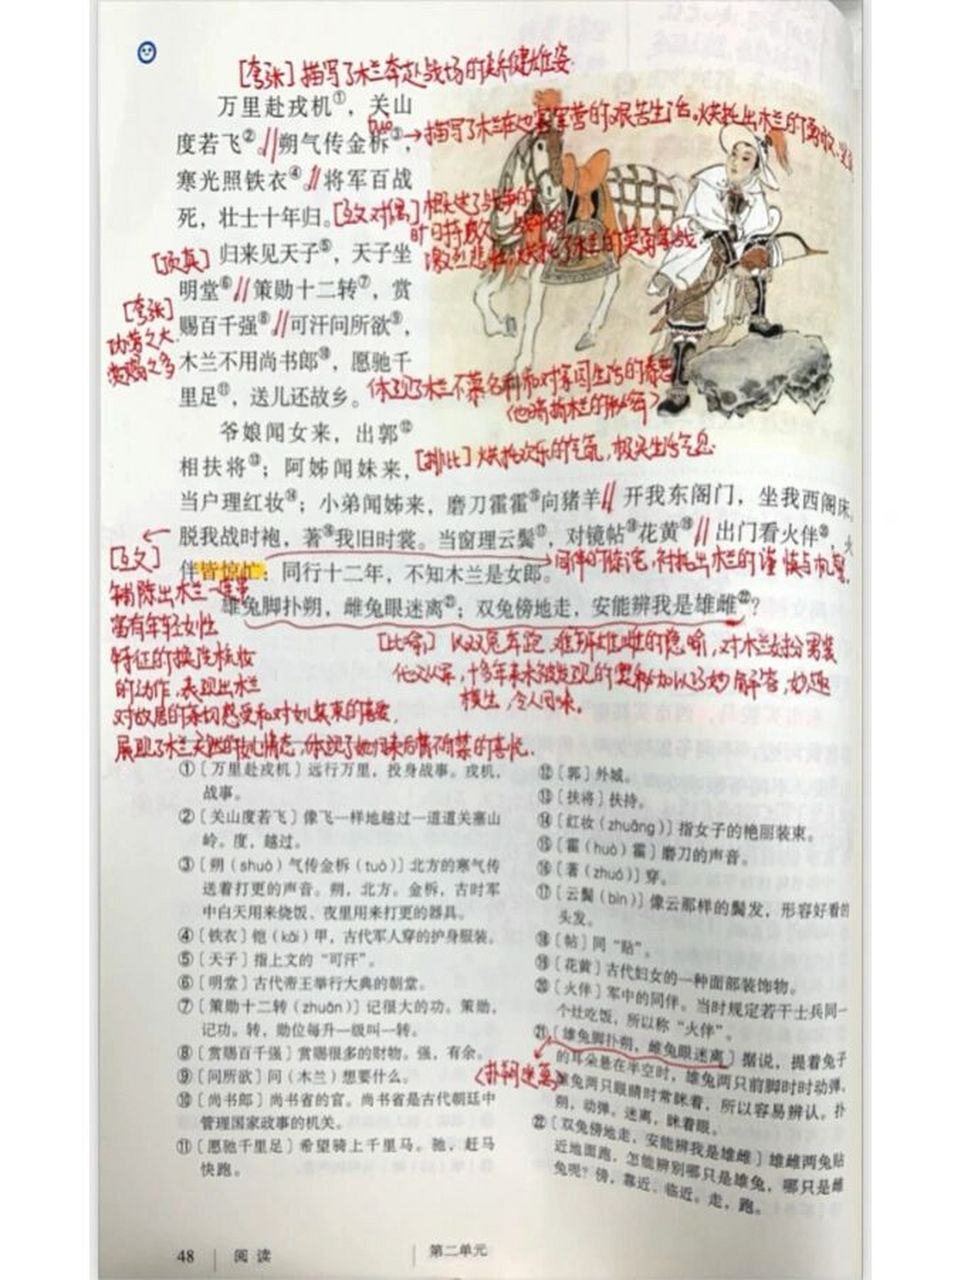 [夸张]描写了木兰奔赴战场的矫健雄姿
万里赴戎机①，关山
度若飞②。//朔气传金柝③，
tuò
→描写了木兰在边塞军营的艰苦生活。烘托出木兰的勇敢、坚
寒光照铁衣④。//将军百战
死，壮士十年归。
[互文 对偶]概述了战争的
时间持久
激烈悲壮，烘托了木兰的英勇善战
[顶真]
归来见天子⑤，天子坐
明堂⑥。//策勋十二转⑦，赏
[夸张]
功劳之大
赏赐之多
赐百千强⑧。//可汗问所欲⑨，
木兰不用尚书郎⑩，愿驰千
里足⑪，送儿还故乡。
体现了木兰不慕名利和对家园生活的眷恋
爷娘闻女来，出郭⑫
相扶将⑬；阿姊闻妹来，
[排比]烘托欢乐的气氛，极具生活气息
当户理红妆⑭；小弟闻姊来，磨刀霍霍⑮向猪羊。//开我东阁门，坐我西阁床，
脱我战时袍，著⑯我旧时裳。当窗理云鬓⑰，对镜帖⑱花黄⑲。//出门看火伴⑳，火
伴皆惊忙：同行十二年，不知木兰是女郎。
→同伴的惊诧，衬托出木兰的谨慎与机智
雄兔脚扑朔，雌兔眼迷离㉑；双兔傍地走，安能辨我是雄雌㉒？
[互文]
铺陈出木兰一连串
富有年轻女性
特征的换洗梳妆
的动作，表现出木兰
对故居的亲切感受和对女儿装束的喜爱，
[比喻]以双兔奔跑，难辨雄雌的隐喻，对木兰女扮男装
代父从军，十多年来未被发现的奥秘加以巧妙解答，妙趣
横生，令人回味。
①［万里赴戎机］远行万里，投身战事。戎机，
战事。
②［关山度若飞］像飞一样地越过一道道关塞山
岭。度，越过。
③［朔（shuò）气传金柝（tuò）］北方的寒气传
送着打更的声音。朔，北方。金柝，古时军
中白天用来烧饭、夜里用来打更的器具。
④［铁衣］铠（kǎi）甲，古代军人穿的护身服装。
⑤［天子］指上文的“可汗”。
⑥［明堂］古代帝王举行大典的朝堂。
⑦［策勋十二转（zhuǎn）］记很大的功。策勋，
记功。转，勋位每升一级叫一转。
⑧［赏赐百千强］赏赐很多的财物。强，有余。
⑨［问所欲］问（木兰）想要什么。
⑩［尚书郎］尚书省的官。尚书省是古代朝廷中
管理国家政事的机关。
⑪［愿驰千里足］希望骑上千里马。驰，赶马
快跑。
⑫［郭］外城。
⑬［扶将］扶持。
⑭［红妆（zhuāng）］指女子的艳丽装束。
⑮［霍（huò）霍］磨刀的声音。
⑯［著（zhuó）］穿。
⑰［云鬓（bìn）］像云那样的鬓发，形容好看的
头发。
⑱［帖］同“贴”。
⑲［花黄］古代妇女的一种面部装饰物。
⑳［火伴］军中的同伴。当时规定若干士兵同一
个灶吃饭，所以称“火伴”。
㉑［雄兔脚扑朔，雌兔眼迷离］据说，提着兔子
的耳朵悬在半空时，雄兔两只前脚时时动弹，
雌兔两只眼睛时常眯着，所以容易辨认。扑
朔，动弹。迷离，眯着眼。
（扑朔迷离）
㉒［双兔傍地走，安能辨我是雄雌］雄雌两兔贴
近地面跑，怎能辨别哪只是雄兔，哪只是雌
兔呢？傍，靠近、临近。走，跑。
48
阅读
第二单元